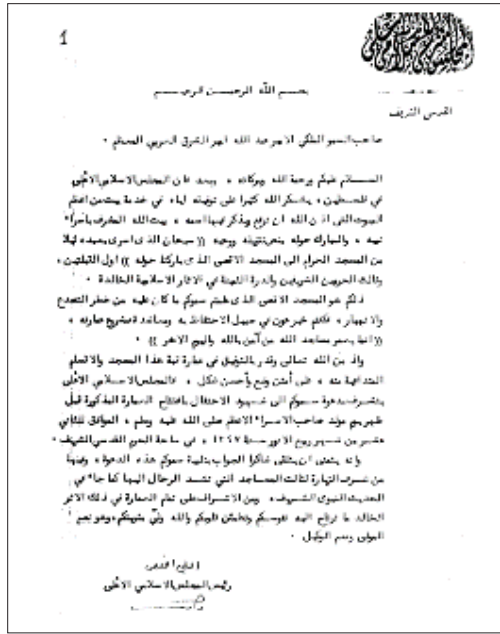 1
المجلس الشرعي الإسلامي الأعلى
بسم الله الرحمن الرحيم
القدس الشريف
صاحب السمو الملكي الامير عبد الله امير الشرق العربي المعظم ٠
السلام عليكم ورحمة الله وبركاته ٠ وبعد فان المجلس الاسلامي الاعلى
في فلسطين ، يشكر الله كثيرا على توفيقه اياه في خدمة بيت من اعظم
البيوت التي اذن الله ان ترفع ويذكر فيها اسمه ٠ بيت الله المشرف باسراء
نبيه ٠ والمبارك حوله بنص تنزيله ووحيه (( سبحان الذي اسرى بعبده ليلا
من المسجد الحرام الى المسجد الاقصى الذي باركنا حوله )) اول القبلتين ،
وثالث الحرمين الشريفين والدرة الثمينة في الاثار الاسلامية الخالدة ٠
ذلكم هو المسجد الاقصى الذي علمتم سموكم ما كان عليه من خطر التصدع
والانهيار ، فكنتم خير عون في سبيل الاحتفاظ به ومساعدة مشروع عمارته ٠
(( انما يعمر مساجد الله من آمن بالله واليوم الاخر )) ٠
واذ من الله تعالى وقدر بالتوفيق في عمارة قبة هذا المسجد والاقسام
على أمتن وضع وأحسن شكل ٠ فالمجلس الاسلامي الاعلى
يتشرف بدعوة سموكم الى شهود الاحتفال بافتتاح العمارة المذكورة قبل
ظهر يوم مولد صاحب الاسراء الاعظم صلى الله عليه وسلم ، الموافق للثاني
عشر من شهر ربيع الانور سنة ١٣٤٧ ، في ساحة الحرم القدسي الشريف ٠
وانه يتمنى ان يتلقى شاكرا الجواب بتلبية سموكم هذه الدعوة ،
من شرف الزيارة لثالث المساجد التي تشد الرحال اليها كما جاء في
الحديث النبوي الشريف ، ومن الاشراف على تمام العمارة في ذلك الاثر
الخالد ما ترتاح اليه نفوسكم وتطمئن قلوبكم والله ولي وهو نعم
المولى ونعم الوكيل ٠
رئيس المجلس الاسلامي الاعلى